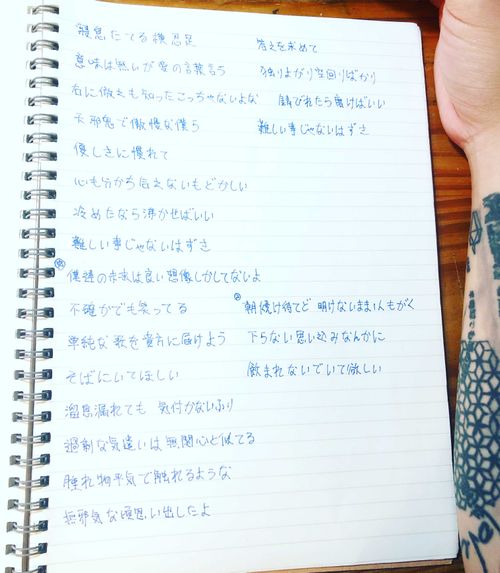 寝息たてる横忍足
意味は無いが愛の言葉言う
右に倣えも知ったこっちゃないよな
天邪鬼で傲慢な僕ら
優しさに慣れて
心も分かち合えないもどかしい
冷めたなら沸かせばいい
難しい事じゃないはずさ
僕達の未来は良い想像しかしてないよ
不確かでも笑ってる
単純な歌を貴方に届けよう
そばにいてほしい
溜息漏れても 気付かないふり
過剰な気遣いは無関心と似てる
腫れ物平気で触れるような
無邪気な頃思い出したよ
答えを求めて
独りよがり空回りばかり
錆びれたら磨けばいい
難しい事じゃないはずさ
朝焼け待てど 明けないまま1人もがく
下らない思い込みなんかに
飲まれないでいて欲しい